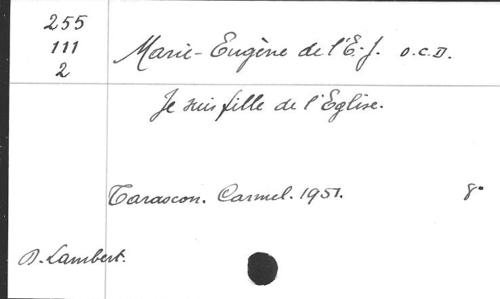 255
111
2
Marie-Eugène de l'E.-J. O.C.D.
Je suis fille de l'Eglise.
Tarascon. Carmel. 1951. 8°
D. Lambert.